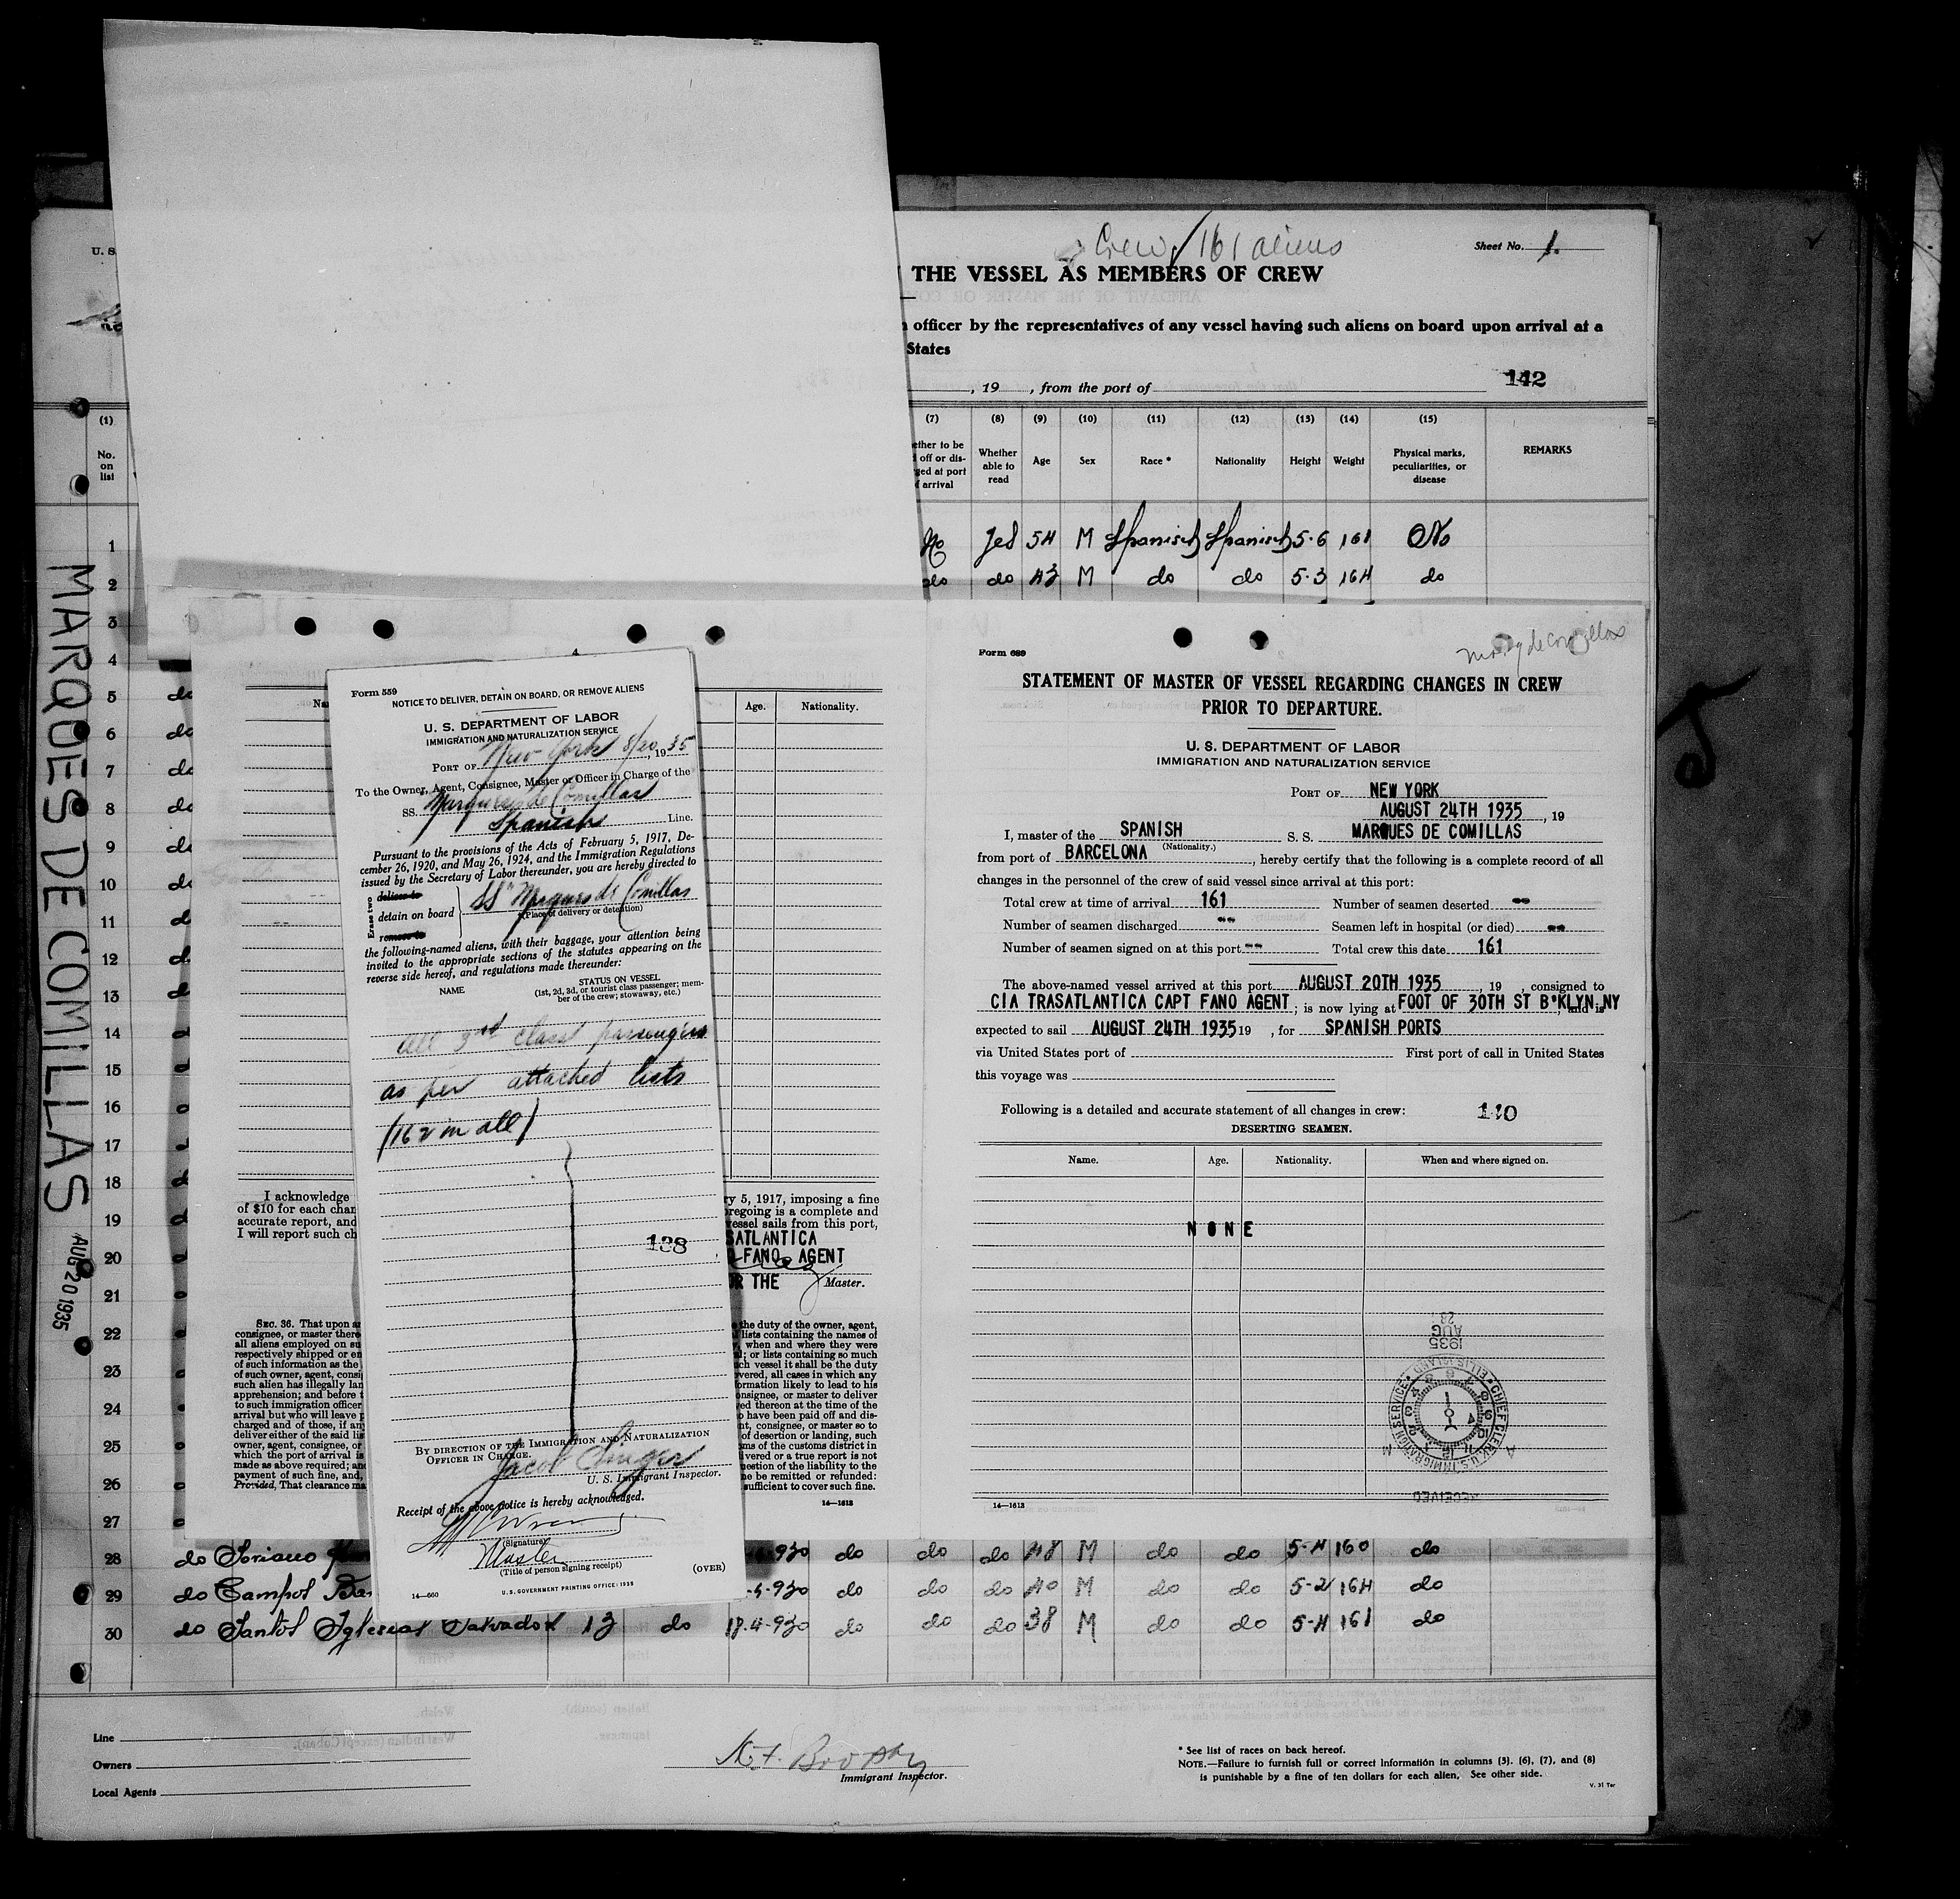 Crew 161 aliens
Sheet No. 1.
THE VESSEL AS MEMBERS OF CREW
officer by the representatives of any vessel having such aliens on board upon arrival at a
States
, 19 , from the port of
142
U. S.
(1) (7) (8) (9) (10) (11) (12) (13) (14) (15)
No. on list
Whether able to read
Age
Sex
Race *
Nationality
Height
Weight
Physical marks, peculiarities, or disease
REMARKS
1 No Yes 54 M Spanish Spanish 5-6 161 No
2 do do 43 M do do 5-3 164 do
3
4
5 do
6 do
7 do
8 do
9 do
10 do
11 do
12 do
13 do
14
15
16
17
18
19
20
21
22
23
24
25
26
27
28 do Soriano 930 do do do 48 M do do 5-4 160 do
29 do Campos 930 do do do 40 M do do 5-2 164 do
30 do Santos Iglesias Salvador 13 do 18-4-930 do do do 38 M do do 5-4 161 do
MARQUES DE COMILLAS
AUG 20 1935
4
Age. Nationality.
I acknowledge
of $10 for each
accurate report, and
I will report such
ry 5, 1917, imposing a fine
regoing is a complete and
vessel sails from this port,
FANO AGENT
THE Master.
SEC. 36. That upon
consignee, or master
all aliens employed on
respectively shipped or
of such information as the
of such owner, agent,
such alien has illegally
apprehension; and before
to such immigration officer
arrival but who will leave
charged and of those, if any
deliver either of the said
owner, agent, consignee, or
which the port of arrival is
made as above required; and
payment of such fine, and,
Provided, That clearance
the duty of the owner, agent,
lists containing the names of
, when and where they were
; or lists containing so much
ch vessel it shall be the duty
overed, all cases in which any
formation likely to lead to his
consignee, or master to deliver
ed thereon at the time of the
have been paid off and dis-
nt, consignee, or master so to
of desertion or landing, such
ms of the customs district in
livered or a true report is not
question of the liability to the
ne be remitted or refunded:
sufficient to cover such fine.
14—1613
Form 559
NOTICE TO DELIVER, DETAIN ON BOARD, OR REMOVE ALIENS
U. S. DEPARTMENT OF LABOR
IMMIGRATION AND NATURALIZATION SERVICE
PORT OF New York 8/20, 1935
To the Owner, Agent, Consignee, Master or Officer in Charge of the
SS. Marques de Comillas
Spanish Line.
Pursuant to the provisions of the Acts of February 5, 1917, De-
cember 26, 1920, and May 26, 1924, and the Immigration Regulations
issued by the Secretary of Labor thereunder, you are hereby directed to
Erase two
deliver to
detain on board SS "Marques de Comillas
remove to
(Place of delivery or detention)
the following-named aliens, with their baggage, your attention being
invited to the appropriate sections of the statutes appearing on the
reverse side hereof, and regulations made thereunder:
NAME
STATUS ON VESSEL
(1st, 2d, 3d, or tourist class passenger; mem-
ber of the crew; stowaway, etc.)
All 3rd class passengers
as per attached lists
(162 in all)
138
BY DIRECTION OF THE IMMIGRATION AND NATURALIZATION
OFFICER IN CHARGE.
Jacob Singer
U. S. Immigrant Inspector.
Receipt of the above notice is hereby acknowledged.
(Signature)
Master
(Title of person signing receipt)
(OVER)
14—660
U. S. GOVERNMENT PRINTING OFFICE: 1935
Form 689
Marq de Comillas
STATEMENT OF MASTER OF VESSEL REGARDING CHANGES IN CREW
PRIOR TO DEPARTURE.
U. S. DEPARTMENT OF LABOR
IMMIGRATION AND NATURALIZATION SERVICE
PORT OF NEW YORK
AUGUST 24TH 1935, 19
I, master of the SPANISH S. S. MARQUES DE COMILLAS
(Nationality.)
from port of BARCELONA, hereby certify that the following is a complete record of all
changes in the personnel of the crew of said vessel since arrival at this port:
Total crew at time of arrival 161 Number of seamen deserted --
Number of seamen discharged -- Seamen left in hospital (or died) --
Number of seamen signed on at this port -- Total crew this date 161
The above-named vessel arrived at this port AUGUST 20TH 1935, 19 , consigned to
CIA TRASATLANTICA CAPT FANO AGENT; is now lying at FOOT OF 30TH ST B'KLYN,NY, and is
expected to sail AUGUST 24TH 1935 19 , for SPANISH PORTS
via United States port of First port of call in United States
this voyage was
Following is a detailed and accurate statement of all changes in crew: 140
DESERTING SEAMEN.
Name. Age. Nationality. When and where signed on.
NONE
AUG 23 1935
CHIEF CLERK, U.S. IMMIGRATION SERVICE • ELLIS ISLAND
RECEIVED
14—1613
Line
Owners
Local Agents
Immigrant Inspector.
* See list of races on back hereof.
NOTE.—Failure to furnish full or correct information in columns (3), (6), (7), and (8)
is punishable by a fine of ten dollars for each alien. See other side.